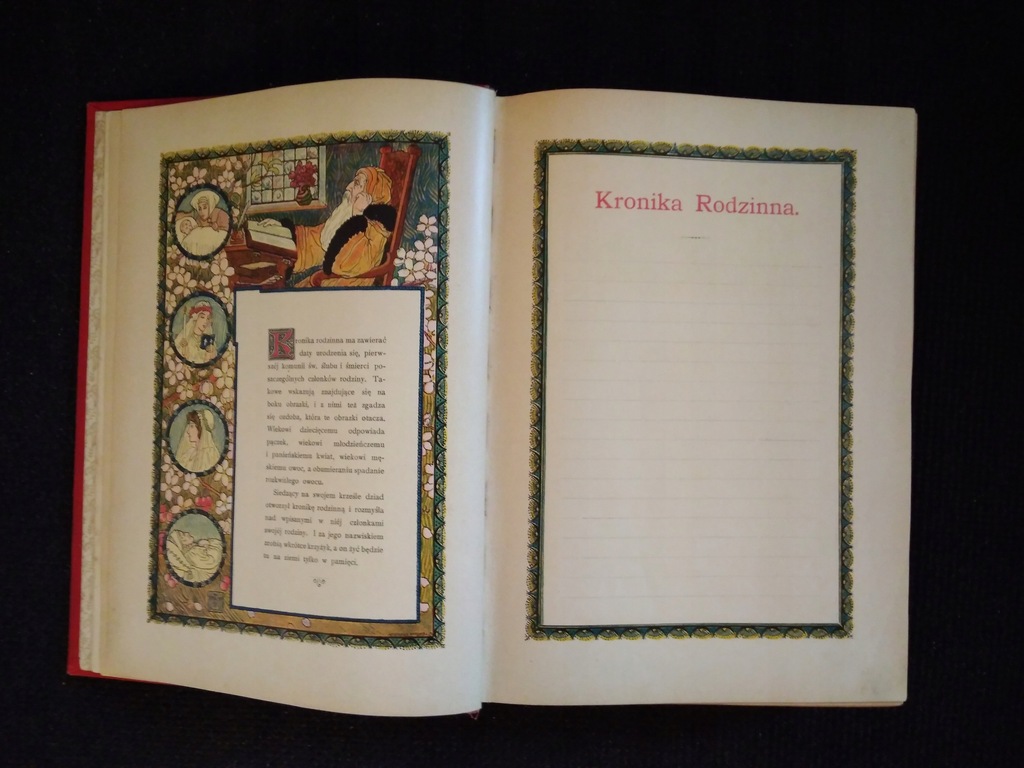 Kronika rodzinna ma zawierać
daty urodzenia się, pierw-
széj komunii św. ślubu i śmierci po-
szczególnych członków rodziny. Ta-
kowe wskazują znajdujące się na
boku obrazki, i z nimi też zgadza
się ozdoba, która te obrazki otacza.
Wiekowi dziecięcemu odpowiada
pączek, wiekowi młodzieńczemu
i panieńskiemu kwiat, wiekowi mę-
skiemu owoc, a obumieraniu spadanie
rozkwitłego owocu.
Siedzący na swojem krześle dziad
otworzył kronikę rodzinną i rozmyśla
nad wpisanymi w niéj członkami
swojéj rodziny. I za jego nazwiskiem
zrobią wkrótce krzyżyk, a on żyć będzie
tu na ziemi tylko w pamięci.
Kronika Rodzinna.